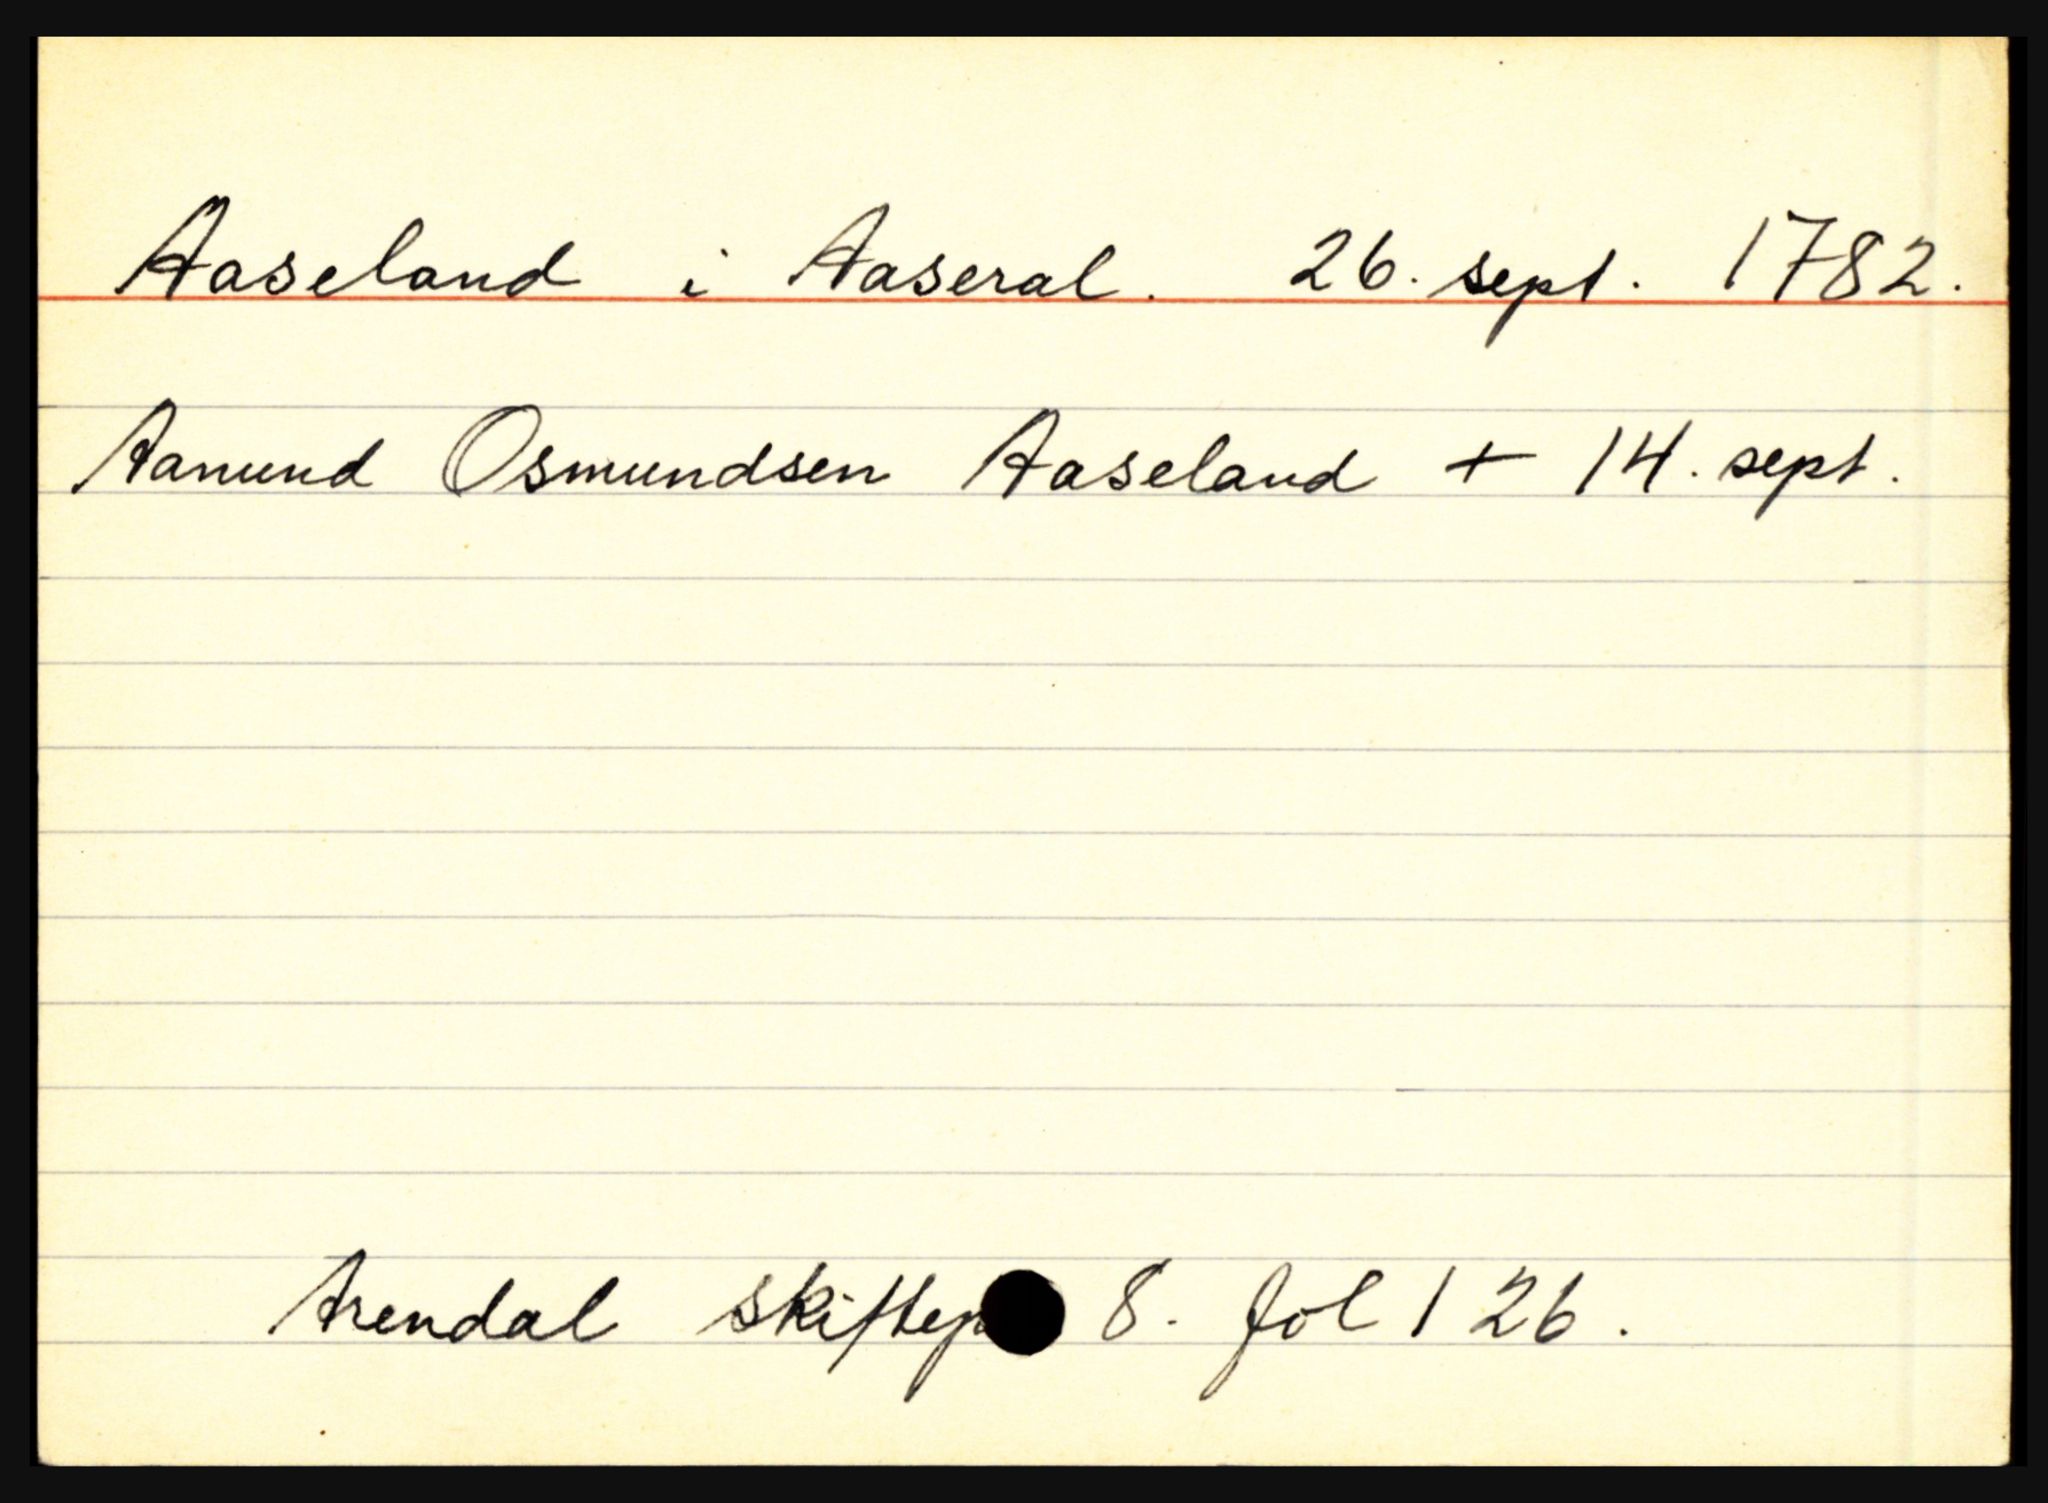 Aaseland i Aaseral. 26. sept. 1782.
Aanund Osmundsen Aaseland + 14. sept.
Arendal skiftep 8. fol 126.